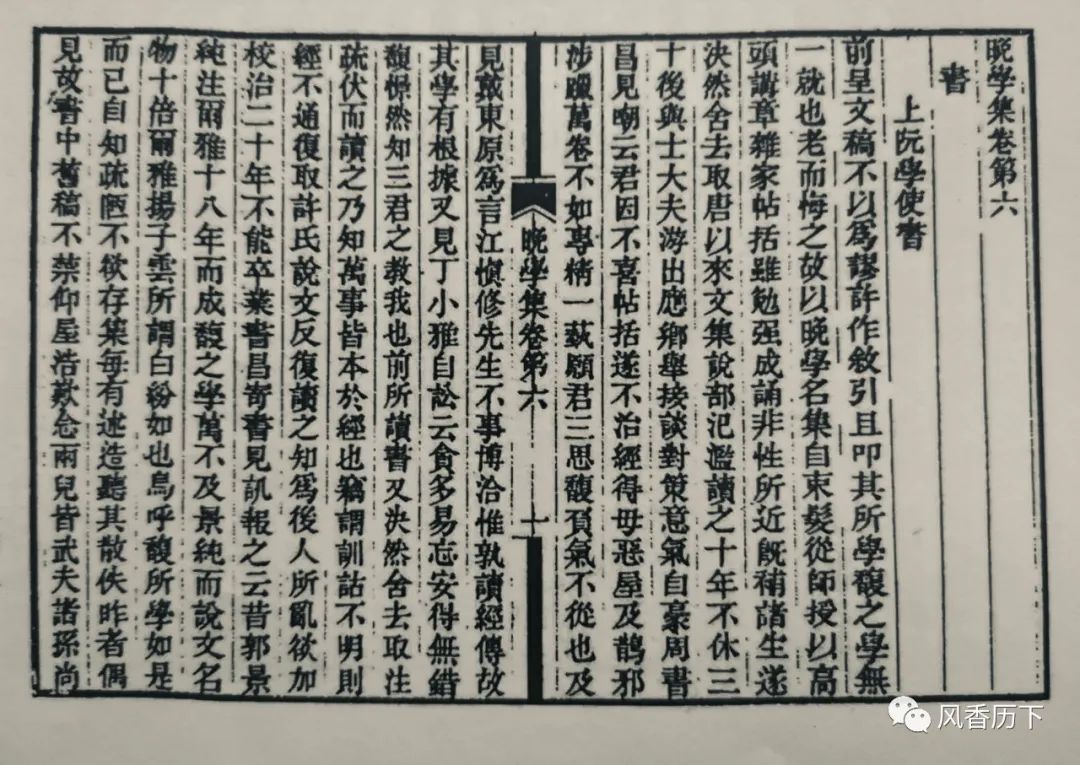 晚學集卷第六
書
上阮學使書
前呈文稿不以爲謬許作敘引且叩其所學馥之學無
一就也老而悔之故以晚學名集自束髮從師授以高
頭講章雜家帖括雖勉强成誦非性所近既補諸生遂
決然舍去取唐以來文集說部汜濫讀之十年不休三
十後與士大夫游出應鄉舉接談對策意氣自豪周書
昌見嘲云君因不喜帖括遂不治經得毋惡屋及鵲邪
涉躐萬卷不如專精一蓺願君三思馥負氣不從也及
晚學集卷第六
十
見戴東原爲言江愼修先生不事博洽惟孰讀經傳故
其學有根據又見丁小雅自訟云貪多易忘安得無錯
馥憬然知三君之教我也前所讀書又決然舍去取注
疏伏而讀之乃知萬事皆本於經也竊謂訓詁不明則
經不通復取許氏說文反復讀之知爲後人所亂欲加
校治二十年不能卒業書昌寄書見訊報之云昔郭景
純注爾雅十八年而成馥之學萬不及景純而說文名
物十倍爾雅揚子雲所謂白紛如也烏呼馥所學如是
而已自知疏陋不欲存集每有述造聽其散佚昨者偶
見故書中舊稿不禁仰屋浩歎念兩兒皆武夫諸孫尚
风香历下